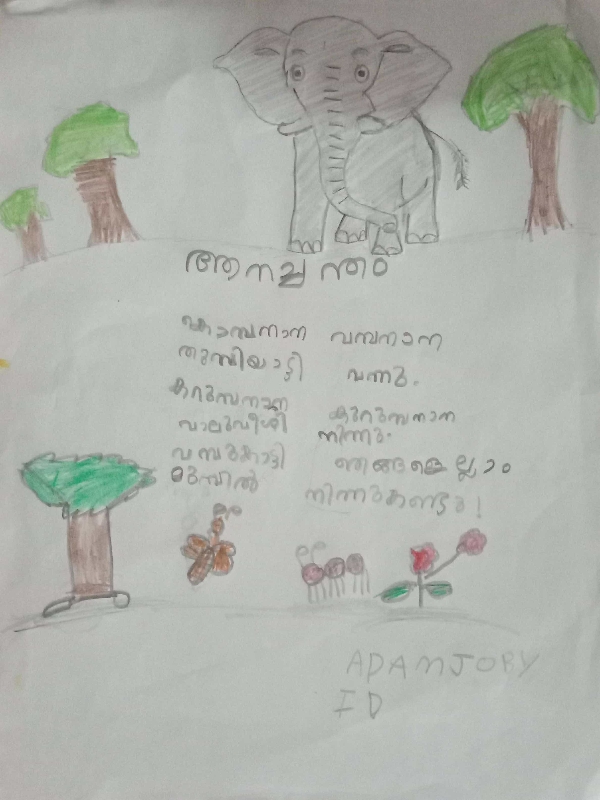 ആനച്ചന്തം
കൊമ്പനാന വമ്പനാന
തുമ്പിയാട്ടി വന്നു.
കറുമ്പനാന കുറുമ്പനാന
വാലുവീശി നിന്നു.
വമ്പുകാട്ടി ഞങ്ങളെല്ലാം
മുമ്പിൽ നിന്നുകണ്ടു!
ADAM JOBY
I D